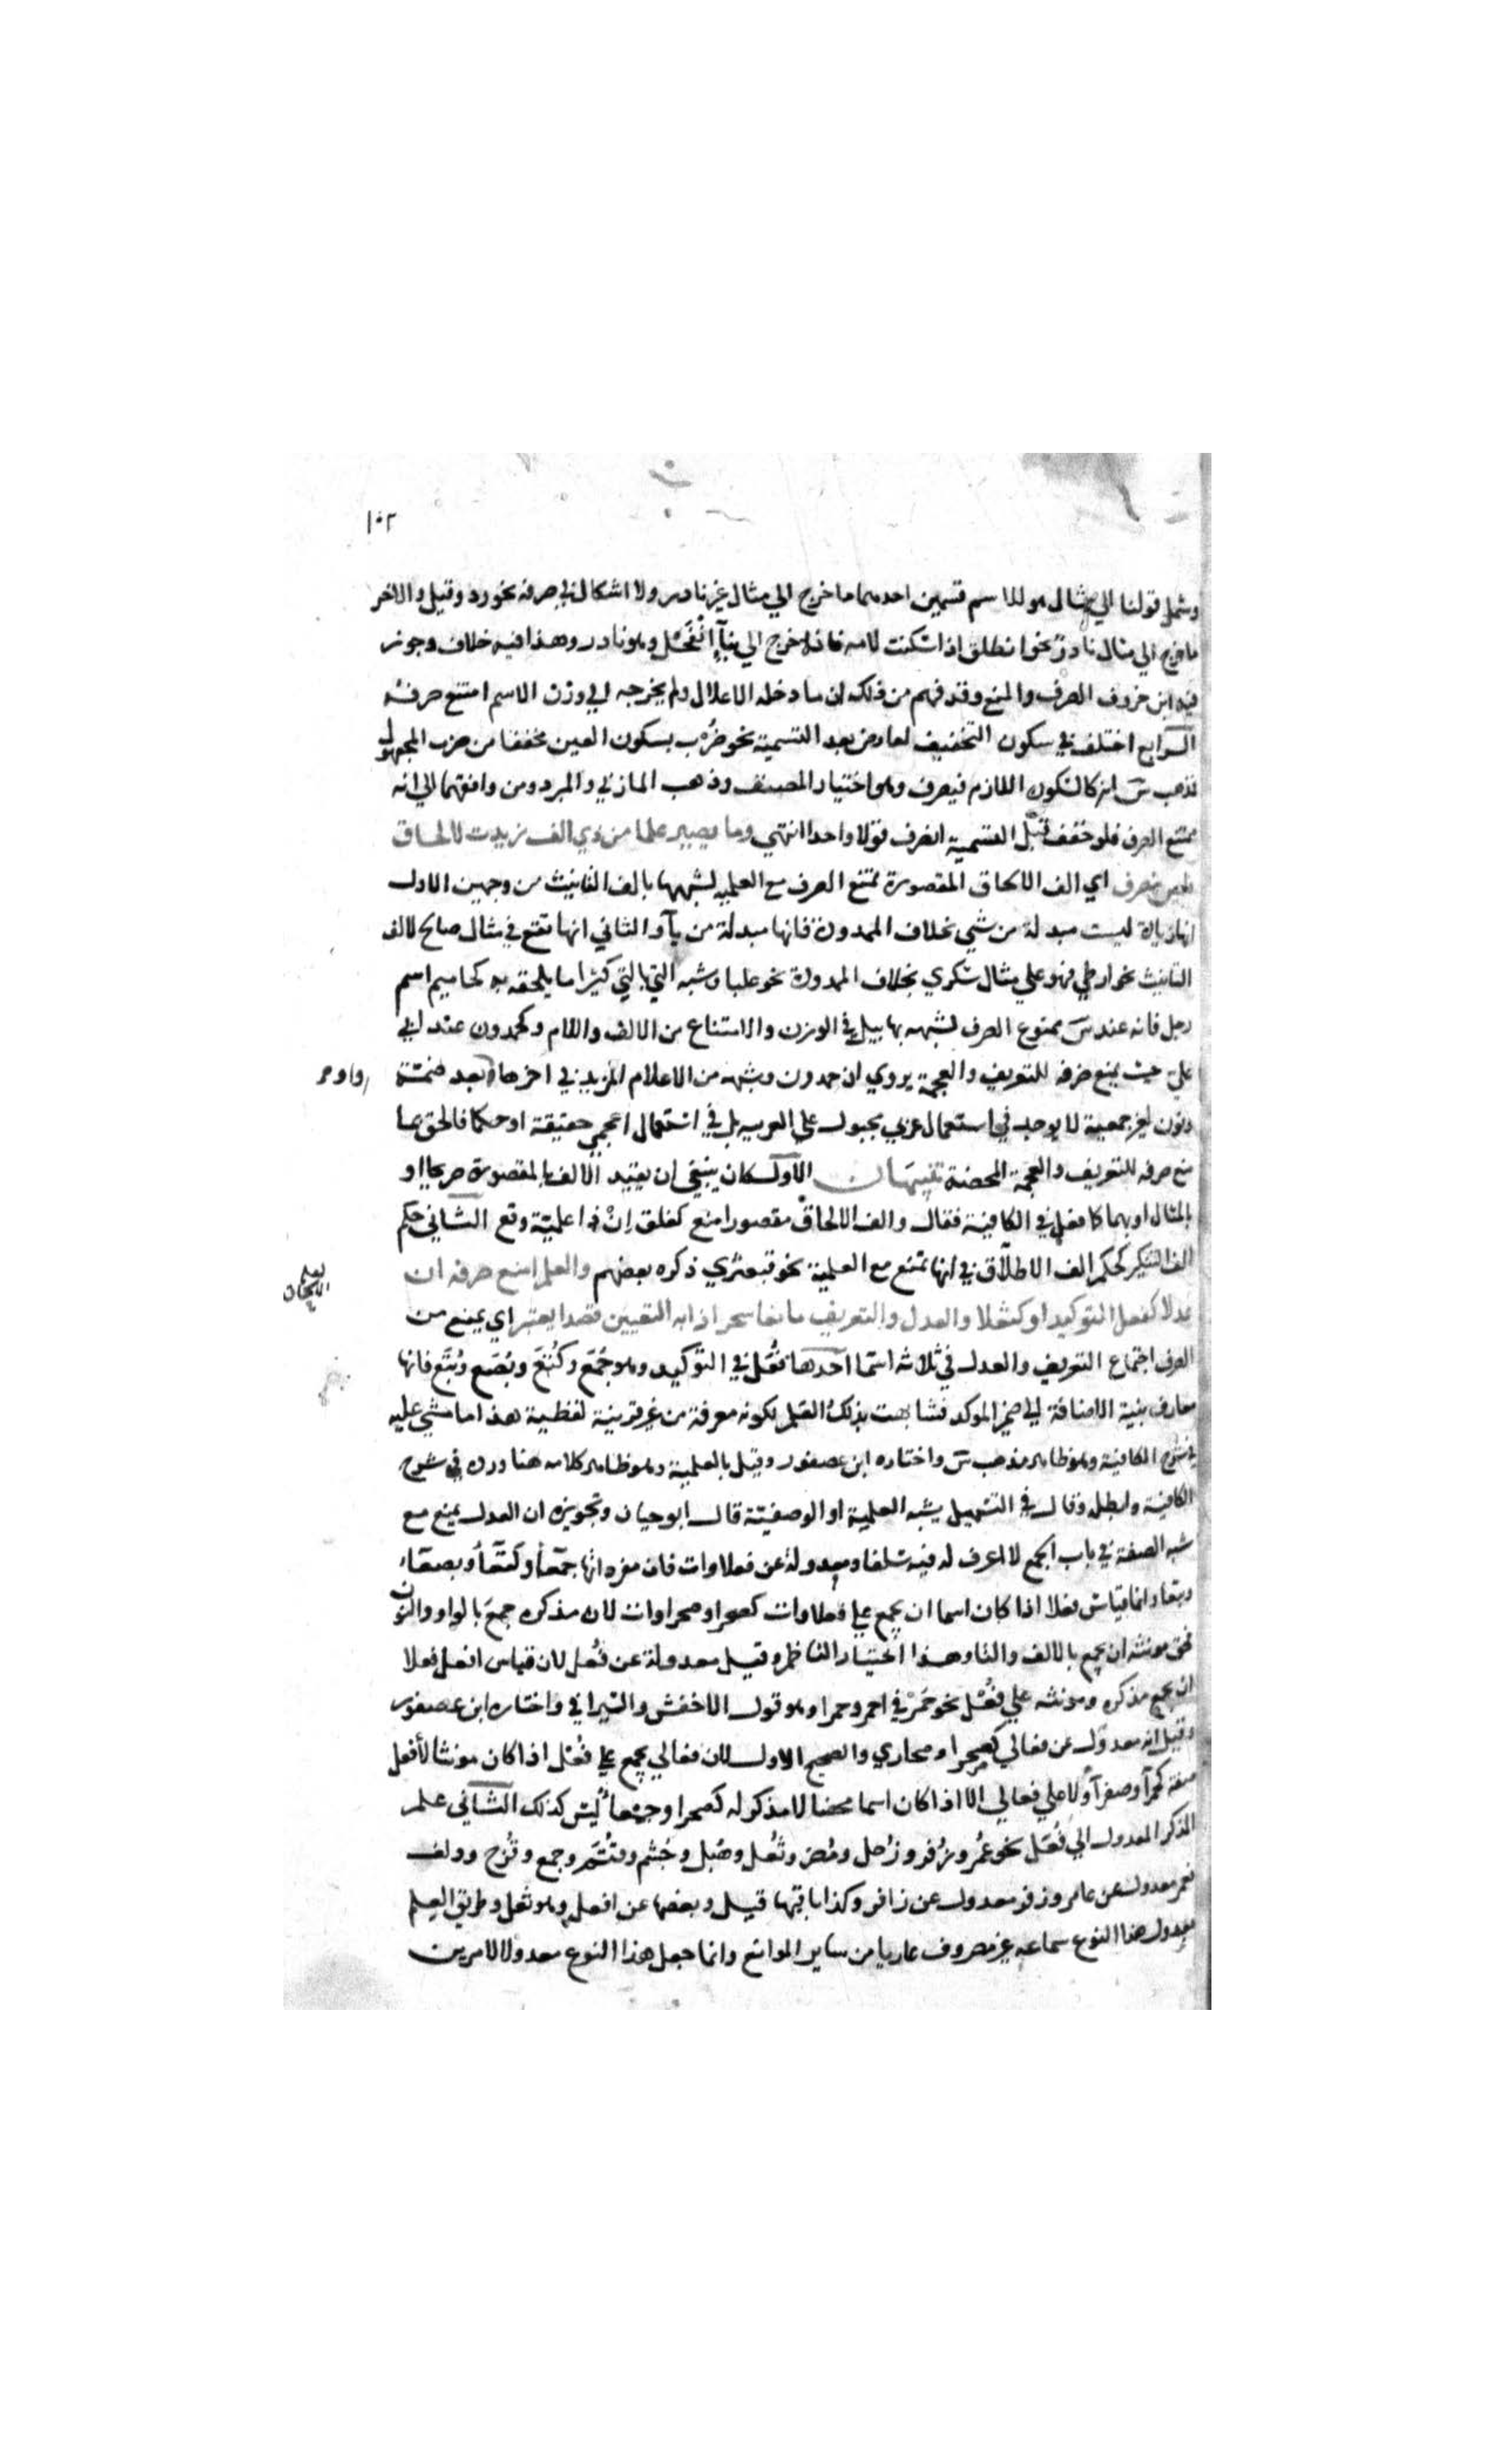 ١٠٢
وشمل قولنا الي مثال هو للاسم قسمين احدهما ما خرج الي مثال غير نادر ولا اشكال في صرفه نحو رد وقيل والاخر
ما خرج الي مثال نادر نحو انطلق اذا سكنت لامه فانه خرج الي بناء انقحل وهو نادر وهذا فيه خلاف وجوز
فيه ابن خروف الصرف والمنع وقد فهم من ذلك ان ما دخله الاعلال ولم يخرجه الي وزن الاسم امتنع صرفه
الرابع اختلف في سكون التخفيف لعارض بعد التسمية نحو ضُرْب بسكون العين مخففا من ضرب المجهول
فذهب س انه كالسكون اللازم فيصرف وهو اختيار المصنف وذهب المازني والمبرد ومن وافقهما الي انه
ممتنع الصرف فلو خفف قبل التسمية انصرف قولا واحدا انتهي وما يصير علما من ذي الف زيدت لالحاق
فليس ينصرف اي الف الالحاق المقصورة تمنع الصرف مع العلمية لشبهها بالف التانيث من وجهين الاول
انها زيادة ليست مبدلة من شي بخلاف الممدودة فانها مبدلة من يآ والثاني انها تقع في مثال صالح لالف
التانيث نحو ارطي فهو علي مثال سكري بخلاف الممدودة نحو علبا وشبه الشي بالشي كثيرا ما يلحقه به كحاميم اسم
رجل فانه عند س ممنوع الصرف لشبهه بهابيل في الوزن والامتناع من الالف واللام وكحمدون عند ابي
علي حيث يمنع صرفه للتعريف والعجمة يروي ان حمدون وشبهه من الاعلام المزيد في اخرها بعد ضمة
واو
ونون لغير جمعية لا يوجد في استعمال عربي مجبول علي العربية بل في استعمال اعجمي حقيقة او حكما فالحق بما
منع صرفه للتعريف والعجمة المحضة تنبيهان الاول كان ينبغي ان يقيد الالف بالمقصورة صريحا او
بالمثال او بهما كما فعل في الكافية فقال والف الالحاق مقصورا منع كعلق ان ذا علمية وقع الثاني حكم
الف التكثير كحكم الف الاطلاق في انها تمنع مع العلمية نحو قبعثري ذكره بعضهم والعلم امنع صرفه ان
لعله الالحاق
عدلا كفعل التوكيد او كثعلا والعدل والتعريف مانعا سحر اذا به التعيين قصدا يعتبر اي يمنع من
الصرف اجتماع التعريف والعدل في ثلاثه اسما احدها فعل في التوكيد وهو جُمَع وكُتَع وبُصَع وبُتَع فانها
معارف بنية الاضافة الي ضمير الموكد فشابهت بذلك العلم لكونه معرفة من غير قرينة لفظية هذا ما مشي عليه
في شرح الكافية وهو ظاهر مذهب س واختاره ابن عصفور وقيل بالعلمية وهو ظاهر كلامه هنا ورده في شرح
الكافية وابطله وقال في التسهيل يشبه العلمية او الوصفية قال ابو حيان وتجويزه ان العدل يمنع مع
شبه الصفة في باب الجمع لا اعرف له فيه سلفا ومعدولة عن فعلاوات فان مفردها جمعآ وكتعآ وبصعآ
وبتعا وانما قياس فعلا اذا كان اسما ان يجمع علي فعلاوات كصحرا وصحراوات لان مذكره جمع بالواو والنون
فحق مونثه ان يجمع بالالف والتا وهذا اختيار الناظم وقيل معدولة عن فُعْل لان قياس افعل فعلا
ان يجمع مذكره ومونثه علي فُعْل نحو حُمْر في احمر وحمرا وهو قول الاخفش والسيرافي واختاره ابن عصفور
وقيل انه معدول عن فعالي كصحرا وصحاري والصحيح الاول لان فعالي يجمع علي فُعْل اذا كان مونثا لأفعل
صفة كحمرآ وصفرآ ولا علي فعالي الا اذا كان اسما محضا لا مذكر له كصحرا وجمعآ ليس كذلك الثاني علم
المذكر المعدول الي فُعَل نحو عُمَر وزُفر وزُحل ومُضر وثُعل وهُبل وجُشم وقُثم وجمح وقُزح ودلف
فعمر معدول عن عامر وزفر معدول عن زافر وكذا باقيها قيل وبعضها عن افعل وهو ثعل وطريق العلم
بعدول هذا النوع سماعه غير مصروف عاريا من ساير الموانع وانما جعل هذا النوع معدولا لامرين